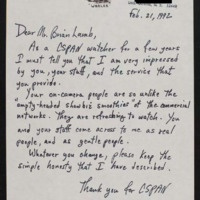 Feb. 21, 1992
Dear Mr. Brian Lamb,
As a CSPAN watcher for a few years
I must tell you that I am very impressed
by you, your staff, and the service that
you provide.
Your on-camera people are so unlike the
"empty-headed showbiz smoothies" at the commercial
networks. They are refreshing to watch. You
and your staff come across to me as real
people, and as gentle people.
Whatever you change, please keep the
simple honesty that I have described.
Thank you for CSPAN